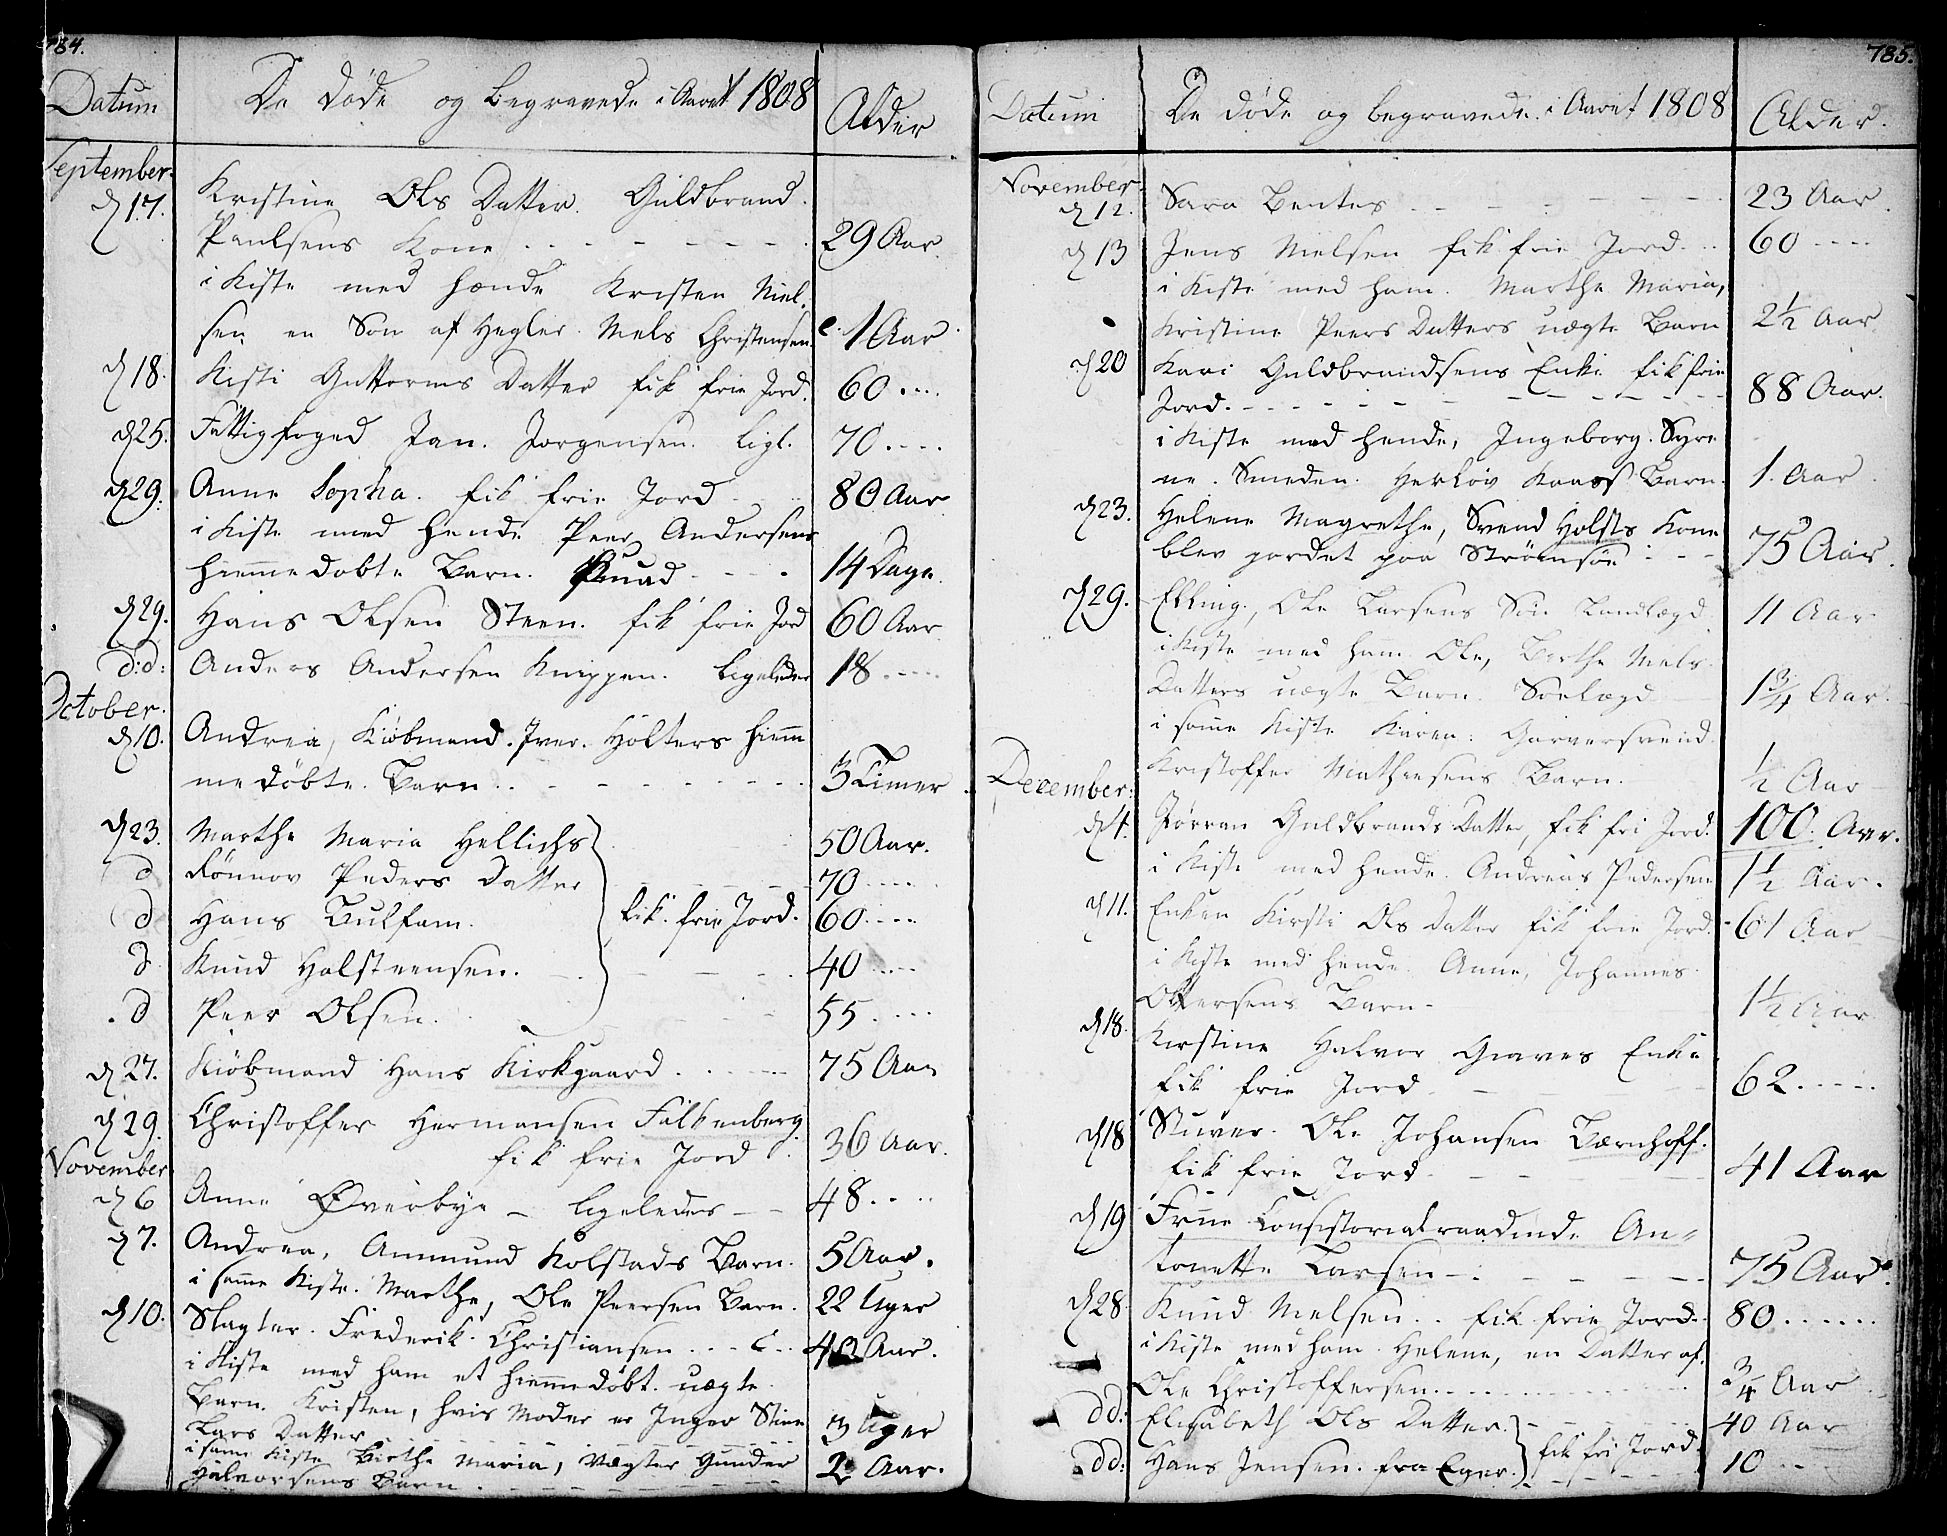 784.
Datum De døde og begravede i Aaret 1808 Alder
September.
d 17. Kristine Ols Datter. Guldbrand
Paulsens Kone 29 Aar.
i Kiste med hende Kristen Niel-
sen en Søn af Hegler Niels Christensen 1 Aar
d 18. Kisti Guttorms Datter fik frie Jord. 60
d 25. Fattigfoged Jan Jorgensen. ligl. 70
d 29. Anne Sopha. fik frie Jord 80 Aar
i Kiste med hende Peer Andersens
hiemmedobte Barn. 14 Dage
d 29. Hans Olsen Steen. fik frie Jord 60 Aar
d:d: Anders Andersen Knippen. ligeledes 18
October.
d 10. Andrea, Kiöbmand Iver Holters hiemm
medöbte Barn 3 Timer
d 23. Marthe Maria Hellichs 50 Aar.
d Rönnov Peders Datter 70
d Hans Bulfam. fik frie Jord. 60
d Knud Halsteensen. 40
d Peer Olsen. 55
d 27. Kiöbmand Hans Kirkgaard 75 Aar
d 29. Christoffer Hermansen Falkenberg
fik frie Jord 36 Aar.
November
d 6 Anne Øverbye ligeledes 48
d 7. Andrea, Ammund Kolstads Barn. 5 Aar.
i samme Kiste. Marthe, Ole Peersen Barn. 22 Uger
d 10. Slagter Frederik Christiansen 40 Aar.
i Kiste med ham et hiemmedöbt uægte
Barn Kristen, hvis Moder er Inger Stine
Lars Datter 3 Uger
i samme Kiste Birthe Maria, Vægter Gunder
Halvorsens Barn 2 Aar.
785.
Datum De døde og begravede i Aaret 1808 Alder.
November.
d 12. Sara Bentes 23 Aar.
d 13 Jens Nielsen fik frie Jord 60
i Kiste med ham. Marthe Maria,
Kristine Peers Datters uægte Barn 2 1/2 Aar
d 20 Kari Guldbrandsens Enke fik frie
Jord. 88 Aar.
i Kiste med hende, Ingeborg Syre
ne. Smeden Herlöv Kaass Barn. 1 Aar
d 23. Helene Magrethe, Svend Holsts Kone
blev jordet paa Strömsöe 75 Aar.
d 29. Elling, Ole Larsens Sön Landlægd 11 Aar
i Kiste med ham Ole, Berthe Niels
Datters uægte Barn. Söelægd 1 3/4 Aar.
i samme Kiste Karen. Garversvend
Kristoffer Mathiesens Barn. 1/2 Aar
December:
d 4. Jörran Guldbrands Datter, fik fri Jord. 100. Aar.
i Kiste med hende. Andreas Pedersen 1 1/2 Aar.
d 11. Enken Kirsti Ols Datter fik frie Jord. 61 Aar
i Kiste med hende. Anne, Johannes
Ottersens Barn 1 1/2 Aar
d 18. Kirstine Halvor Graves Enke
fik frie Jord 62
d 18 Stuver. Ole Johansen Bærnhoff.
fik frie Jord 41 Aar
d 19 Frue Consistorialraadinde An-
tonette Larsen 75 Aar.
d 28. Knud Nielsen fik frie Jord. 80
i Kiste med ham. Helene, en Datter af
Ole Christoffersen 3/4 Aar
dd: Elisabeth Ols Datter 40 Aar
dd: Hans Jensen. fra Eger. fik fri Jord. 10